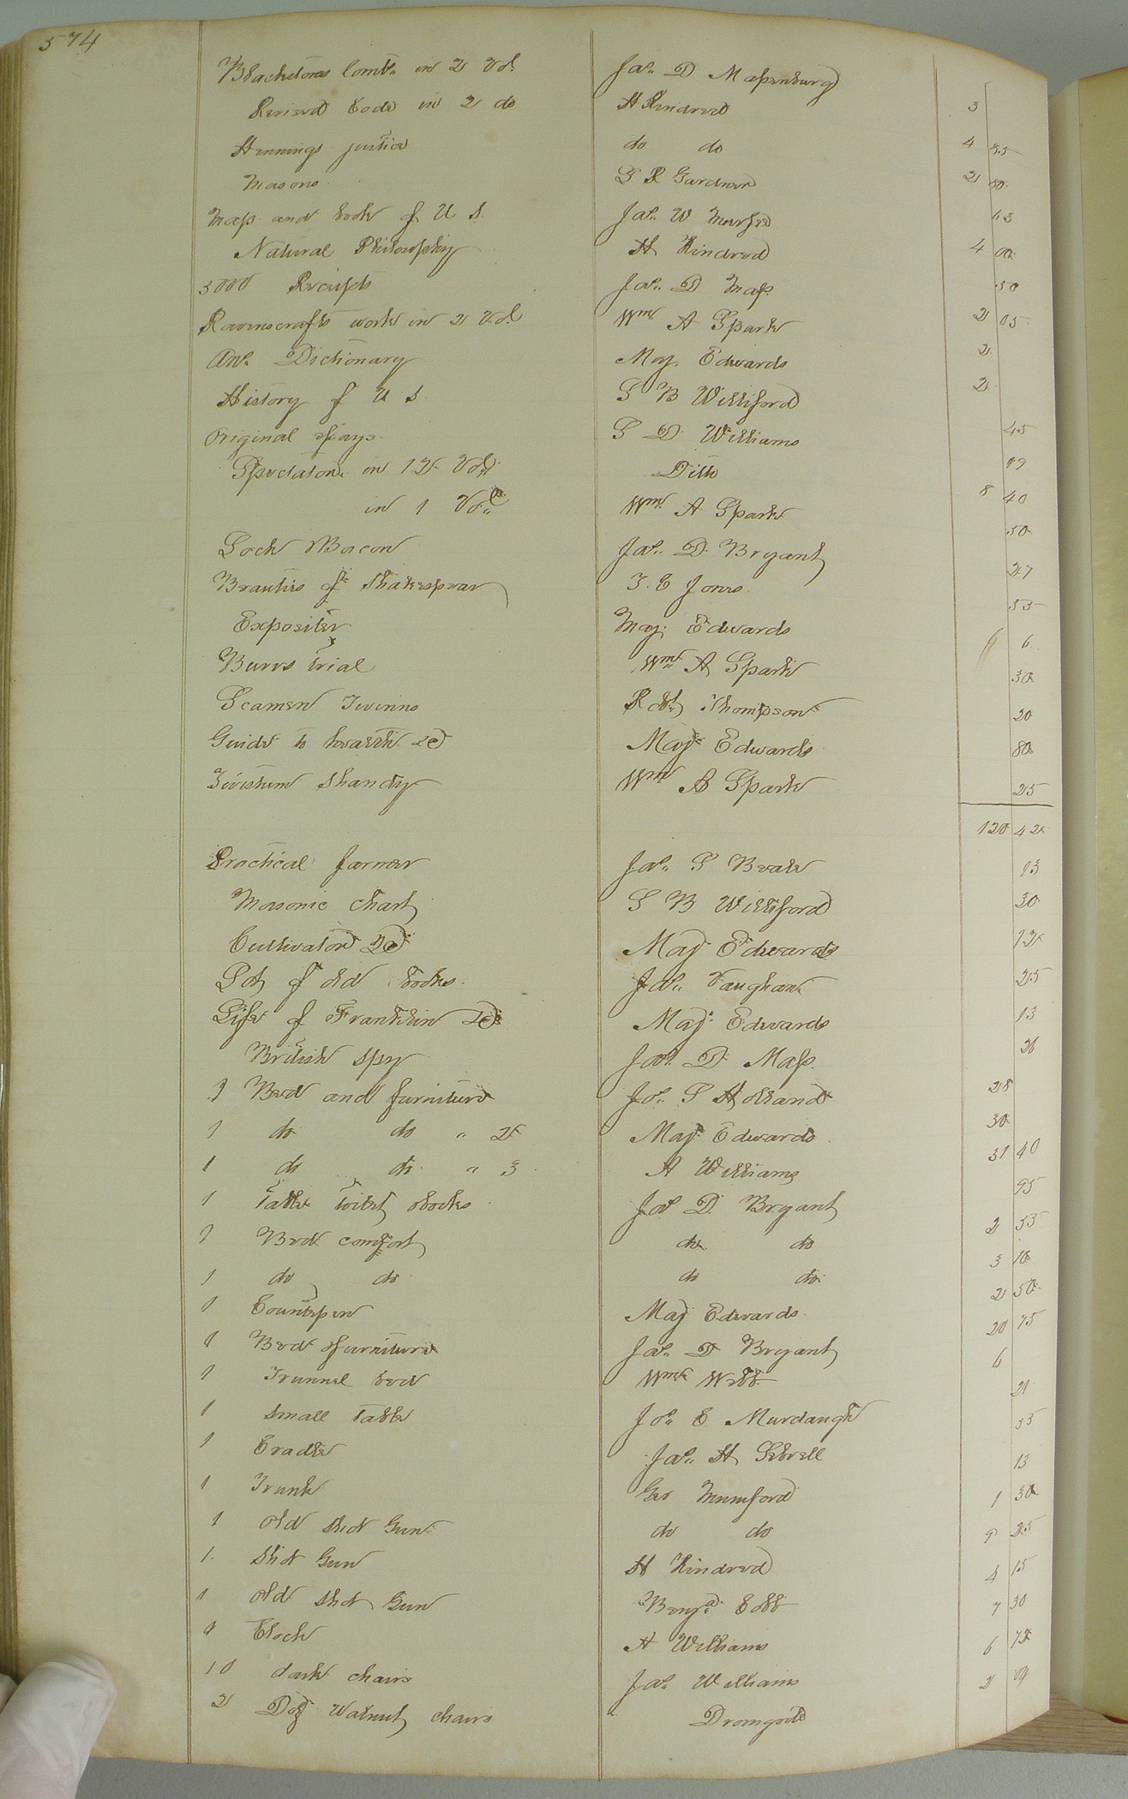 574
Blackstones Comts. in 2 Vol. Jas. D Massenburg
Revised Code in 2 do H Kindred 3
Hennings justice do do 4 25
Masons S R Gardner 2 00
Map and book of U S Jas. W 63
Natural Philosophy H Kindred 4 00
5000 Receipts Jas. D Mass 50
Ravenscrafts work in 2 Vol. Wm. A Spark 2 05
Dictionary Maj. Edwards 2
History of U S S B Williford 2
Original S D Williams 45
Spectator in 12 Vols. Ditto 09
in 1 Vol. Wm. A Spark 8 40
Bacon Jas. D. Bryant 50
Beauties of Shakespear T. E Jones 27
Expositer Maj. Edwards 55
Burrs trial Wm. A Spark 6
Robt. Thompson 30
Guide to health &c Maj. Edwards 20
Shandy Wm A Spark 80
25
120 42
Practical farmer Jas. S Beale 13
Masonic Chart S B Williford 30
Cultivator &c Maj. Edwards 12
Lot of old books Jas. Vaughan 25
Life of Franklin &c Maj. Edwards 13
British Spy Jas. D. Mass. 26
1 Bed and furniture Jos. S Holland 28
1 do do " 2 Maj. Edwards 30
1 do do " 3 A Williams 31 40
1 Table Jas D. Bryant 95
1 Bed comfort do do 2 55
1 do do do do 3 10
1 Counterpin Maj Edwards 2 50
1 Bed & furniture Jas. D Bryant 20 75
1 Trunnel bed Wm. Webb 6
1 Small Table Jos. E Murdaugh 21
1 Cradle Jas. H Sebrell 55
1 Trunk Geo Mumford 13
1 Old Shot Gun do do 1 30
1 Shot Gun H Kindred 9 25
1 Old Shot Gun Benj. Cobb 4 15
1 Clock A Williams 7 30
10 dark chairs Jas. Williams 6 72
2 Doz Walnut chairs Dromgoole 2 09